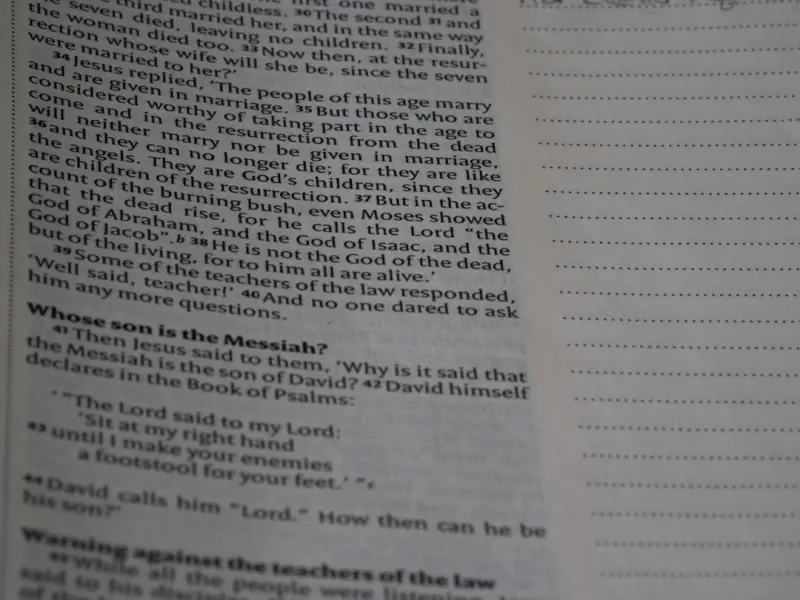 first one married a
childless. 30 The second 31 and
third married her, and in the same way
the seven died, leaving no children. 32 Finally,
the woman died too. 33 Now then, at the resur-
rection whose wife will she be, since the seven
were married to her?’
34 Jesus replied, ‘The people of this age marry
and are given in marriage. 35 But those who are
considered worthy of taking part in the age to
come and in the resurrection from the dead
will neither marry nor be given in marriage,
36 and they can no longer die; for they are like
the angels. They are God’s children, since they
are children of the resurrection. 37 But in the ac-
count of the burning bush, even Moses showed
that the dead rise, for he calls the Lord “the
God of Abraham, and the God of Isaac, and the
God of Jacob”. b 38 He is not the God of the dead,
but of the living, for to him all are alive.’
39 Some of the teachers of the law responded,
‘Well said, teacher!’ 40 And no one dared to ask
him any more questions.
Whose son is the Messiah?
41 Then Jesus said to them, ‘Why is it said that
the Messiah is the son of David? 42 David himself
declares in the Book of Psalms:
‘ “The Lord said to my Lord:
‘Sit at my right hand
43 until I make your enemies
a footstool for your feet.’ ” c
44 David calls him “Lord.” How then can he be
his son?’
Warning against the teachers of the law
45 While all the people were listening,
said to his disciples
of the